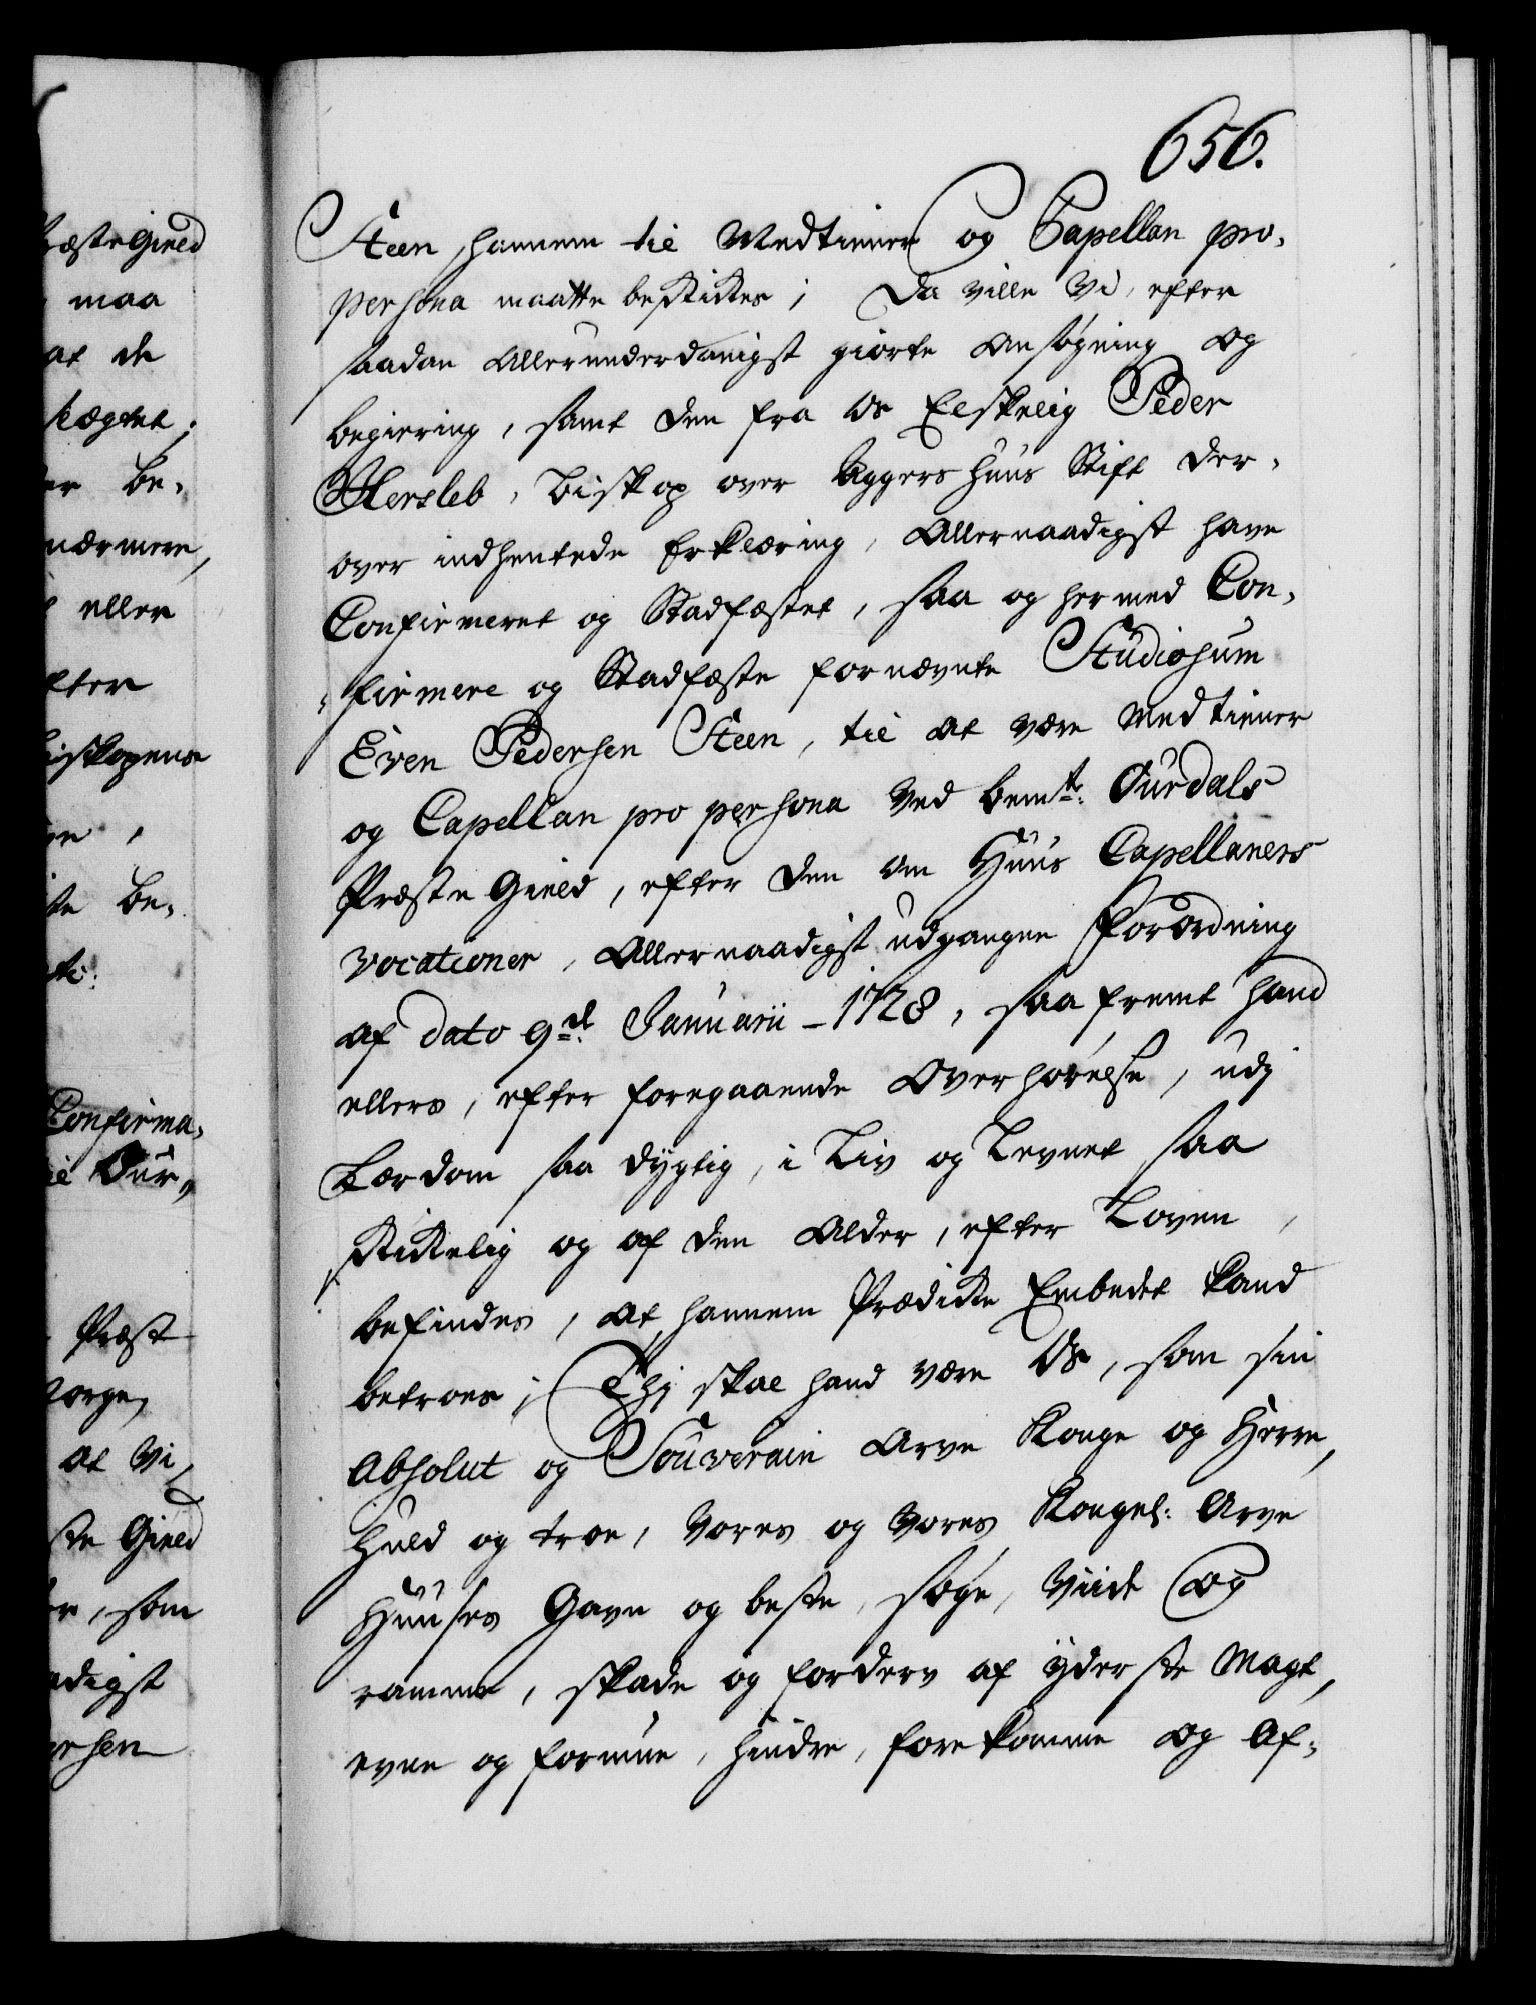 656.
Steen, hannem til Medtiener og Capellan pro-
persona maatte beskikkes; Da ville Vi, efter
saadan Allerunderdanigst giorte Ansøgning og
begiering, samt den fra Os Elskelig Peder
Hersleb, Biskop over Aggershuus Stift der-
over indhentede Erklæring, Allernaadigst have
Confirmeret og Stadfæstet, saa og hermed Con-
-firmere og Stadfæste fornævnte Studiosum
Even Pedersen Steen, til at være Medtiener
og Capellan pro persona ved bemte: Ourdals
Præste Gield, efter den om Huus Capellaners
vocationer, Allernaadigst udgangne Forordning
af dato 9de Januarii - 1728, saafremt hand
ellers, efter foregaaende Overhørelse, udj
Lærdom saa dygtig, i Liv og Levnet saa
skikkelig og af den Alder, efter Loven,
befindes, at hannem Prædicke Embedet kand
betroes; Thj skal hand være Os, som sin
Absolut og Souverain Arve Konge og Herre,
Huld og troe, Vores og Vores Kongel: Arve
Huuses Gavn og beste, søge, Viide og
ramme, skade og forderv af yderste Magt,
evne og formue, hindre, forekomme og Af-
Præste Gield
maa
at de
be-
nærmere,
eller
efter
Biskopens
be-
Confirma-
til Our-
Præst
Norge,
at Vi
Præste Gield
som